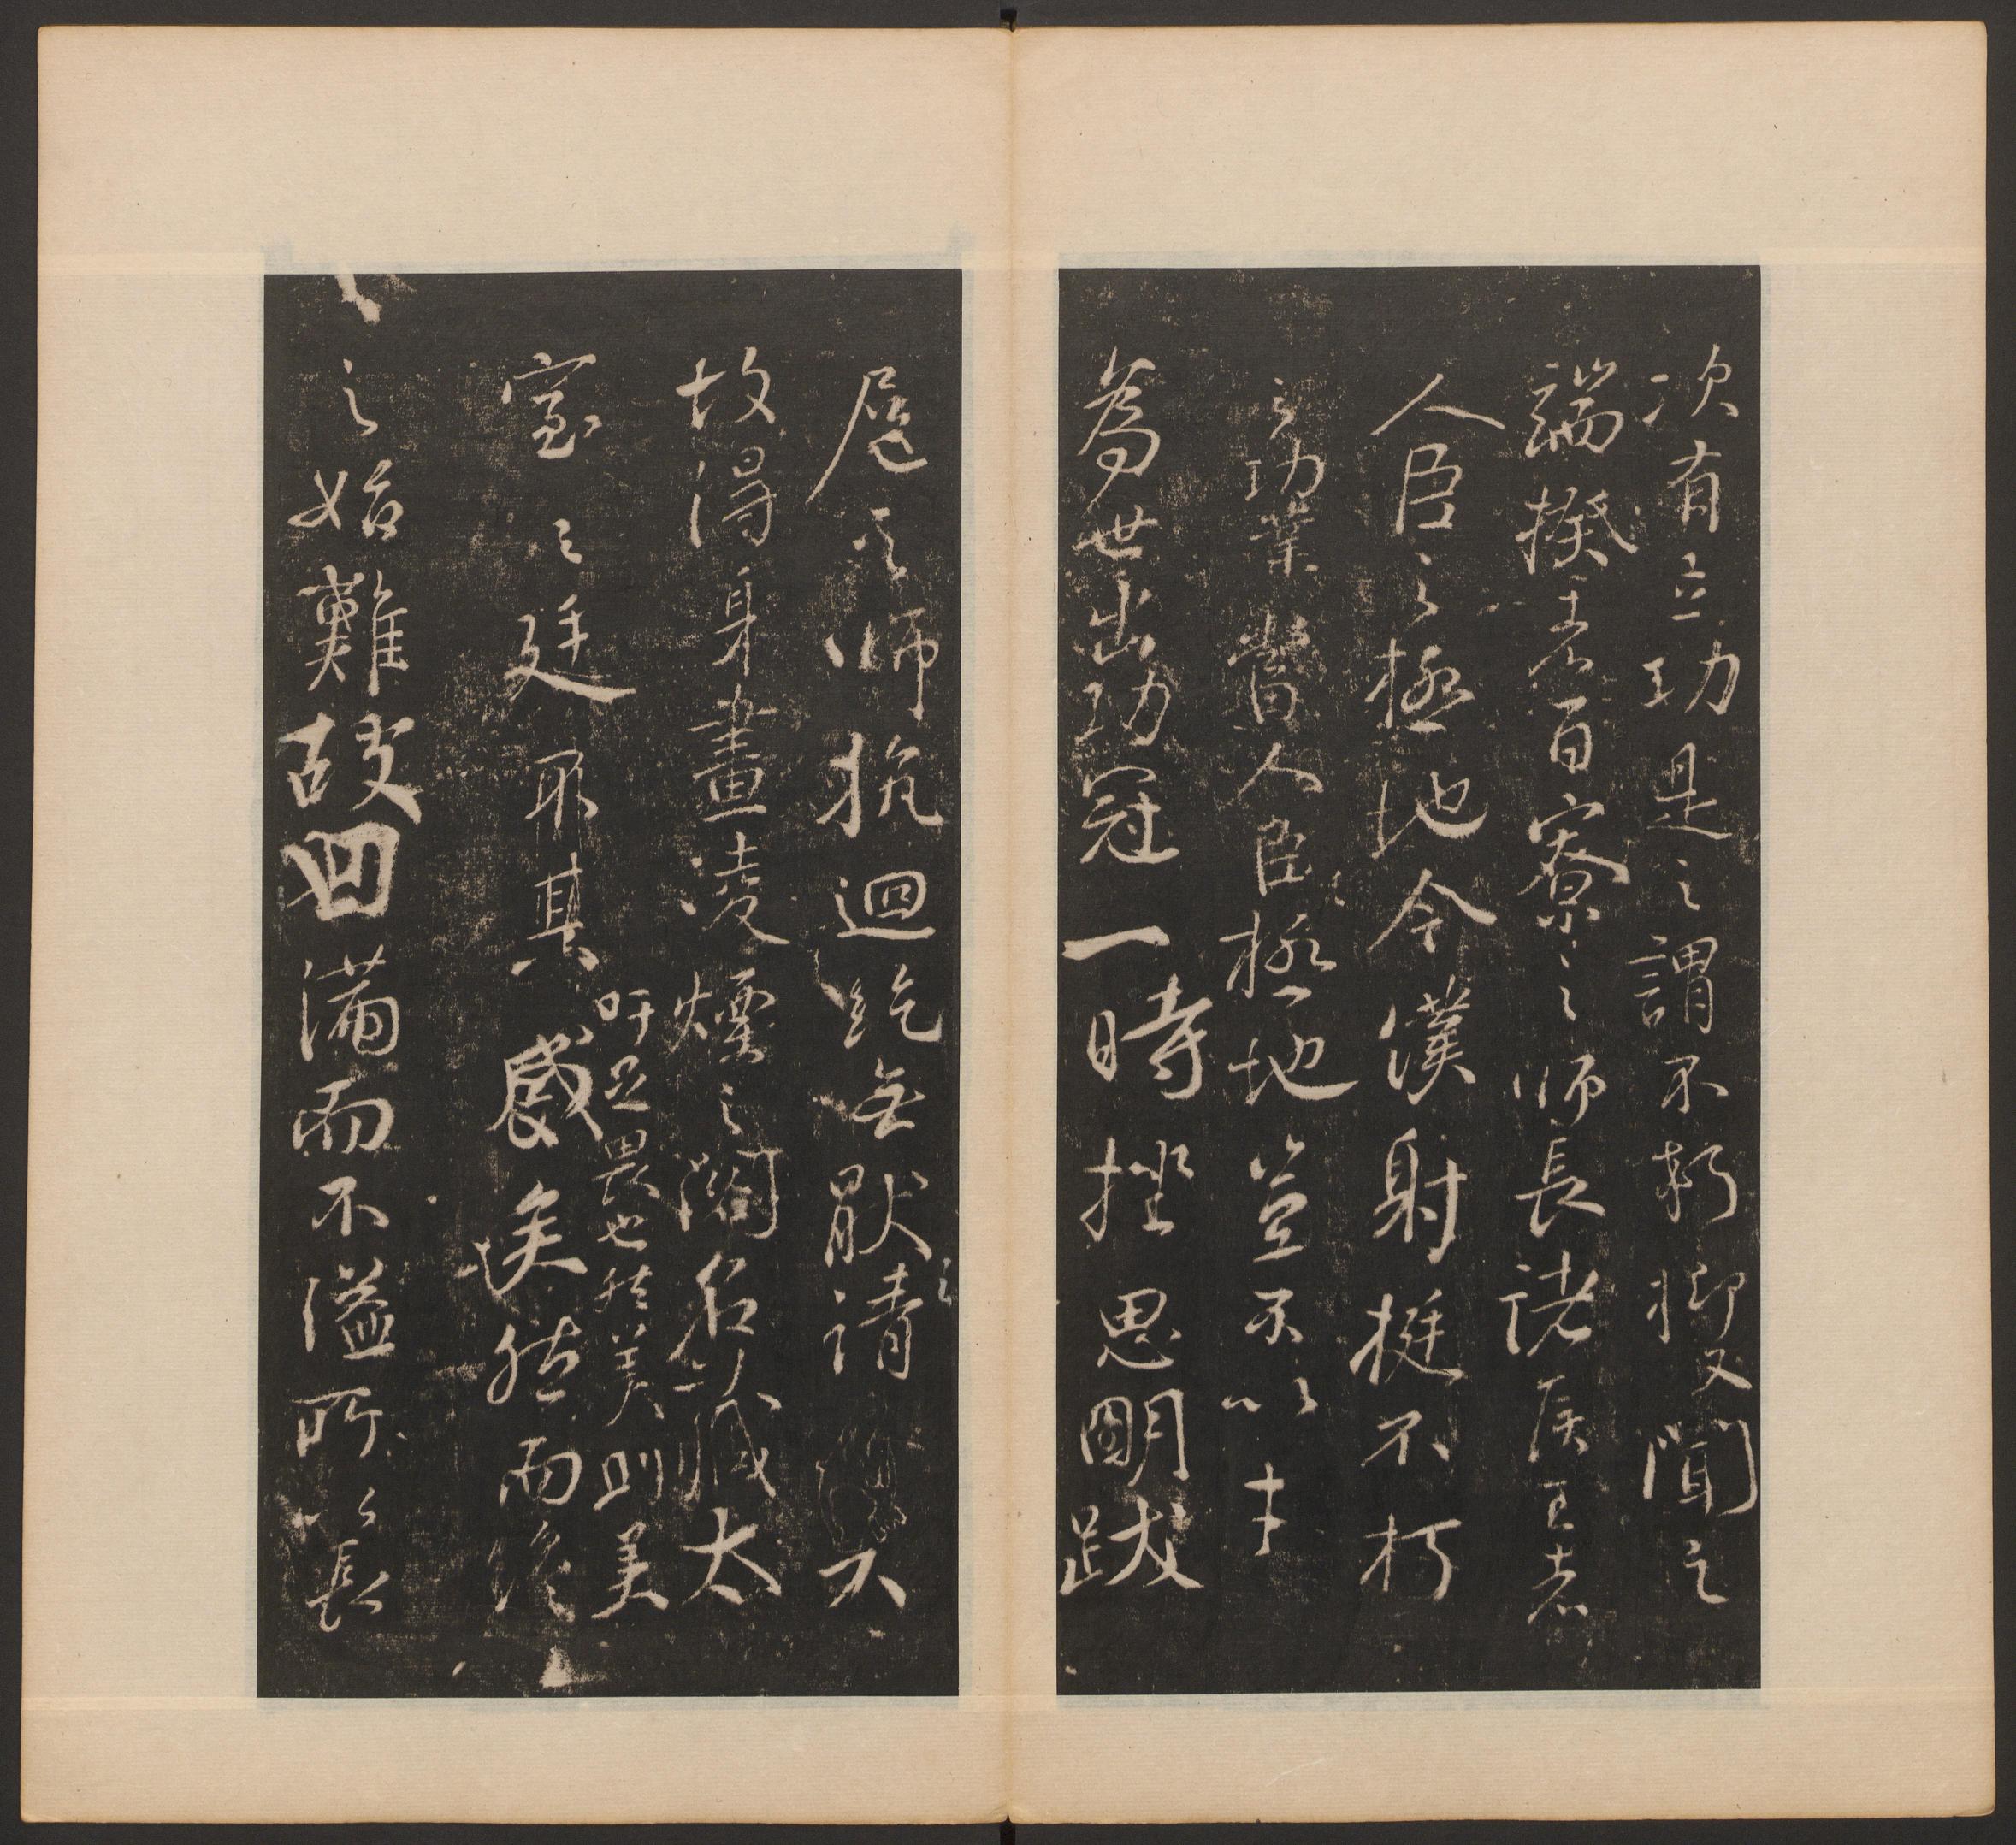 次有立功是之謂不朽抑又聞之
端揆者百寮之師長諸侯王者
人臣之極地今僕射挺不朽
之功業當人臣極地豈不以才
為世出功冠一時挫思明跋
扈之師抗迴紇無猒之請
故得身畫凌煙之閣名藏太
室之廷
吁足畏也然美則美
矣然而終
之始難故曰滿而不溢所以長